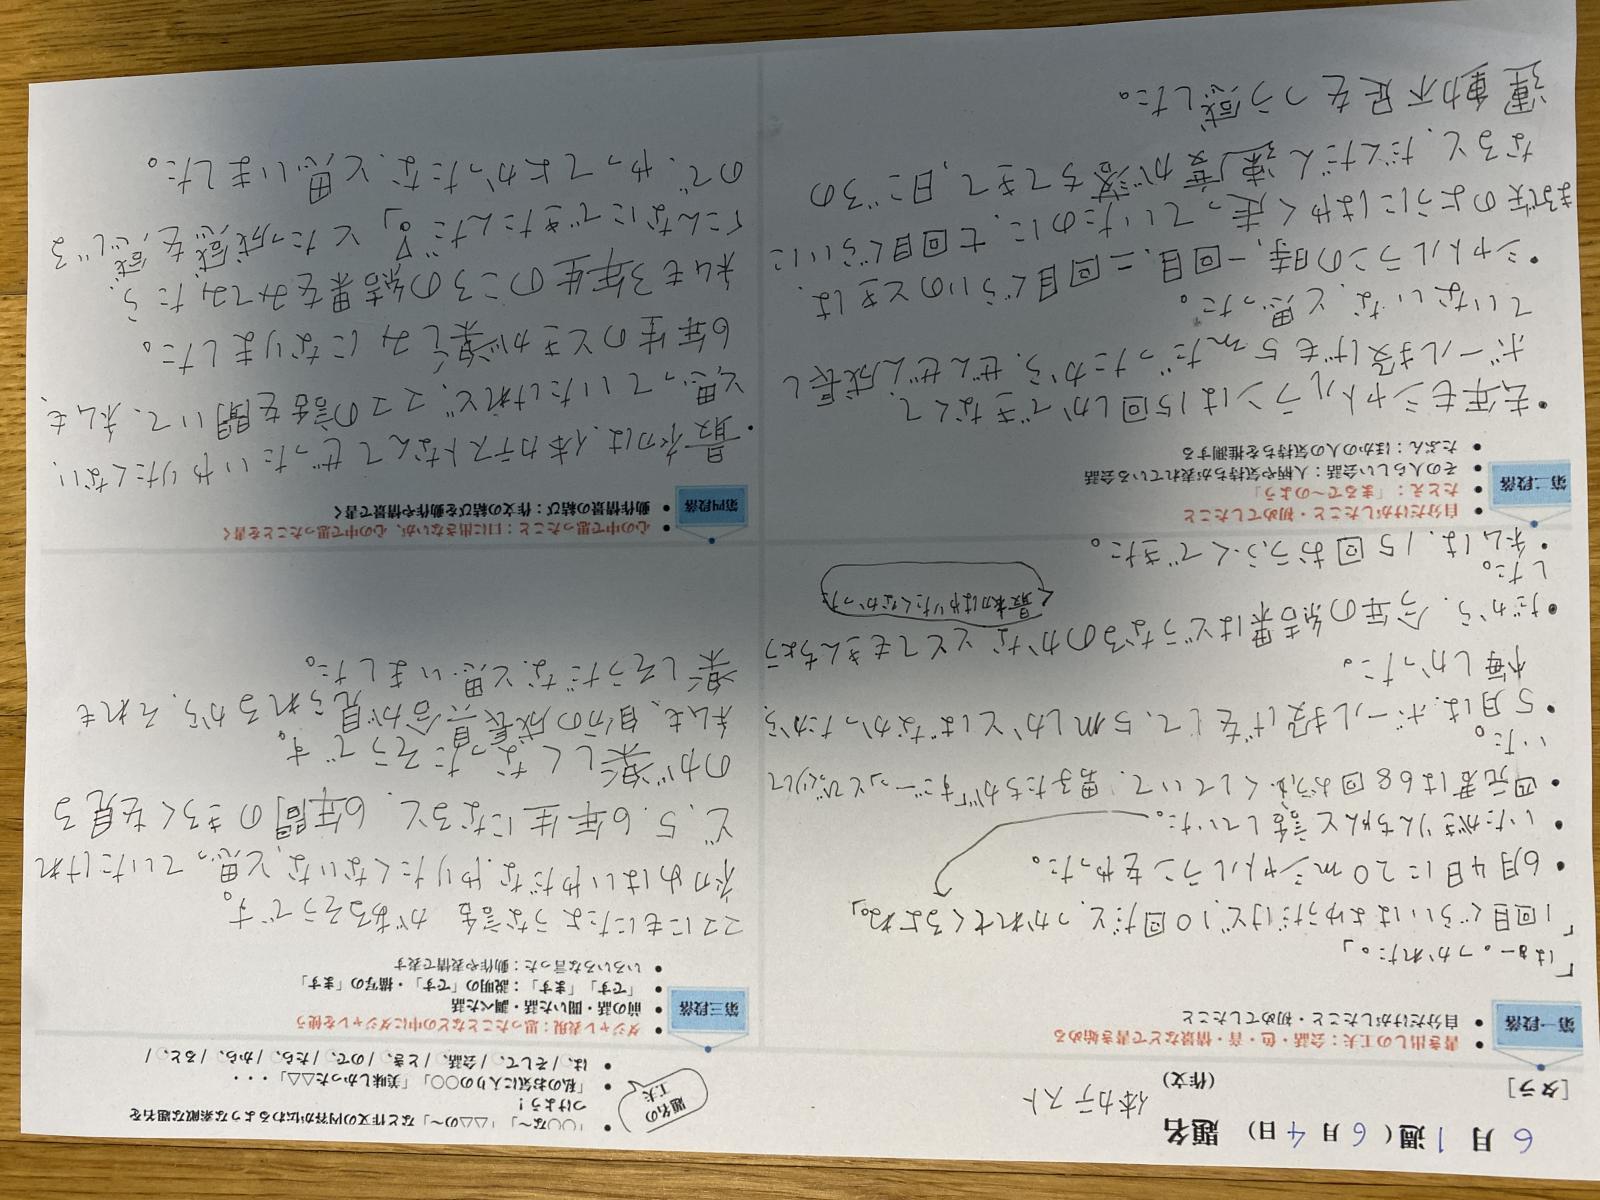 6月1週(6月4日) 題名
体力テスト
(作文)
[タラ]
題名の
工夫
• 「○○な〜」「△△の〜」など作文の内容が伝わるような素敵な題名を
つけよう!
• 「私のお気に入りの○○」「美味しかった△△」・・・
• は、/そして、/会話、/とき、/ので、/たら、/から、/ると、/
第一段落
• 書き出しの工夫：会話・色・音・情景などで書き始める
• 自分だけがしたこと・初めてしたこと
「はぁー。つかれた。」
「1回目ぐらいはよゆうだけど、10回だと、つかれてくるよね。」
• 6月4日に20mシャトルランをやった。
• いたがきりんちゃんと話していた。
• 四元君は68回おうふくしていて、男子たちが「すごーっ」とびっくりして
いた。
• 5月は、ボール投げをして、5mしかとばなかったから、
悔しかった。
• だから、今年の結果はどうなるのかなととてもきんちょう
した。
最初はやりたくなかった
• 私は、15回おうふくできた。
第二段落
• 自分だけがしたこと・初めてしたこと
• たとえ：「まるで〜のよう」
• その人らしい会話：人柄や気持ちが表れている会話
• たぶん：ほかの人の気持ちを推測する
• 去年もシャトルランは15回しかできなくて、
ボール投げも5mだったから、ぜんぜん成長し
ていないな、と思った。
• シャトルランの時、一回目、二回目ぐらいのときは、
まるで矢のようにはやく走っていたのに、七回目ぐらいに
なると、だんだん速度が落ちてきて、日ごろの
運動不足をつう感した。
第三段落
• ダジャレ表現：思ったことなどの中にダジャレを使う
• 前の話・聞いた話・調べた話
• 「です」「ます」：説明の「です」・描写の「ます」
• いろいろな言った：動作や表情で表す
ココにもにたような話があるそうです。
初めはいやだな、やりたくないな、と思っていたけれ
ど、5、6年生になると、6年間のきろくを見る
のが楽しくなったそうです。
私も、自分の成長具合が見られるから、それも
楽しそうだなと思いました。
第四段落
• 心の中で思ったこと：口に出さないが、心の中で思ったことを書く
• 動作情景の結び：作文の結びを動作や情景で書く
• 最初は、体力テストなんてぜったいやりたくない、
と思っていたけれど、ココの話を聞いて、私も、
6年生のときが楽しみになりました。
私も3年生のころの結果をみてみたら、
「こんなにできたんだ。」とたっ成感を感じる
ので、やってよかったな、と思いました。